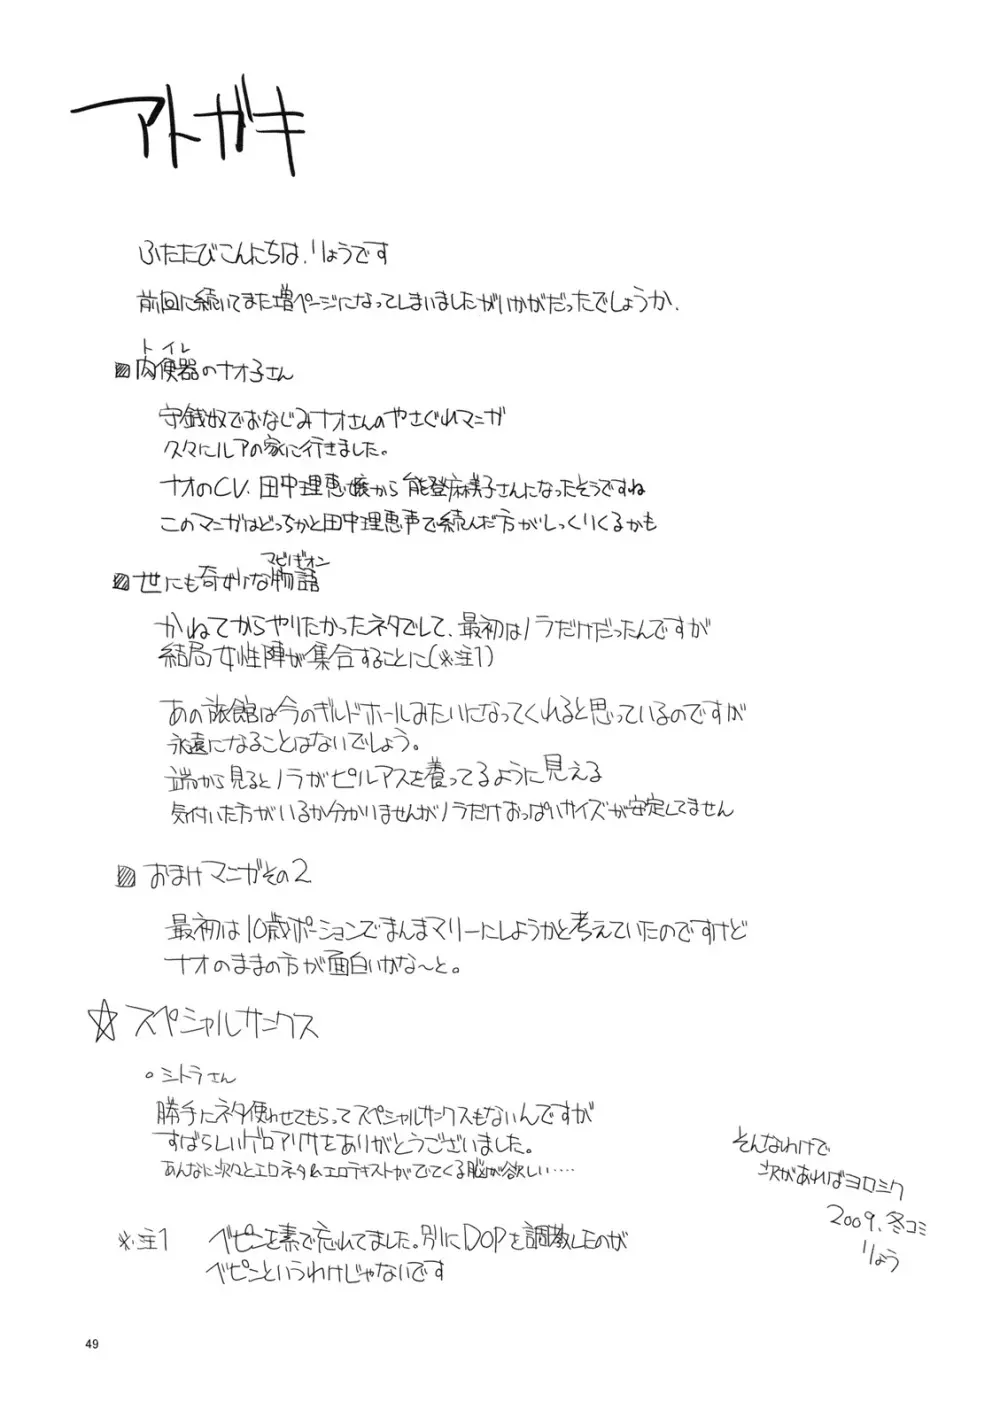 アトガキ
ふたたびこんにちは、りょうです
前回に続いてまた増ページになってしまいましたがいかがだったでしょうか、
トイレ
肉便器のナオ子さん
守銭奴でおなじみナオさんのやさぐれマンガ
久々にルアの家に行きました。
ナオのCV、田中理恵嬢から能登麻美子さんになったそうですね
このマンガはどっちかと田中理恵声で読んだ方がしっくりくるかも
マビノギオン
世にも奇妙な物語
かねてからやりたかったネタでして、最初はノラだけだったんですが
結局女性陣が集合することに(※注1)
あの旅館は今のギルドホールみたいになってくれると思っているのですが
永遠になることはないでしょう。
端から見るとノラがピルアスを養ってるように見える
気付いた方がいるか分かりませんがノラだけおっぱいサイズが安定してません
おまけマンガその2
最初は10歳ポーションでまんまマリーにしようかと考えていたのですけど
ナオのままの方が面白いかな〜と。
☆スペシャルサンクス
○シトラさん
勝手にネタ使わせてもらってスペシャルサンクスもないんですが
すばらしいゲロアリサをありがとうございました。
あんなに次々とエロネタ&エロテキストがでてくる脳が欲しい……
そんなわけで
次があればヨロシク
2009、冬コミ
りょう
※注1 ベビンを素で忘れてました。別にDOPを調教したのが
ベビンというわけじゃないです
49